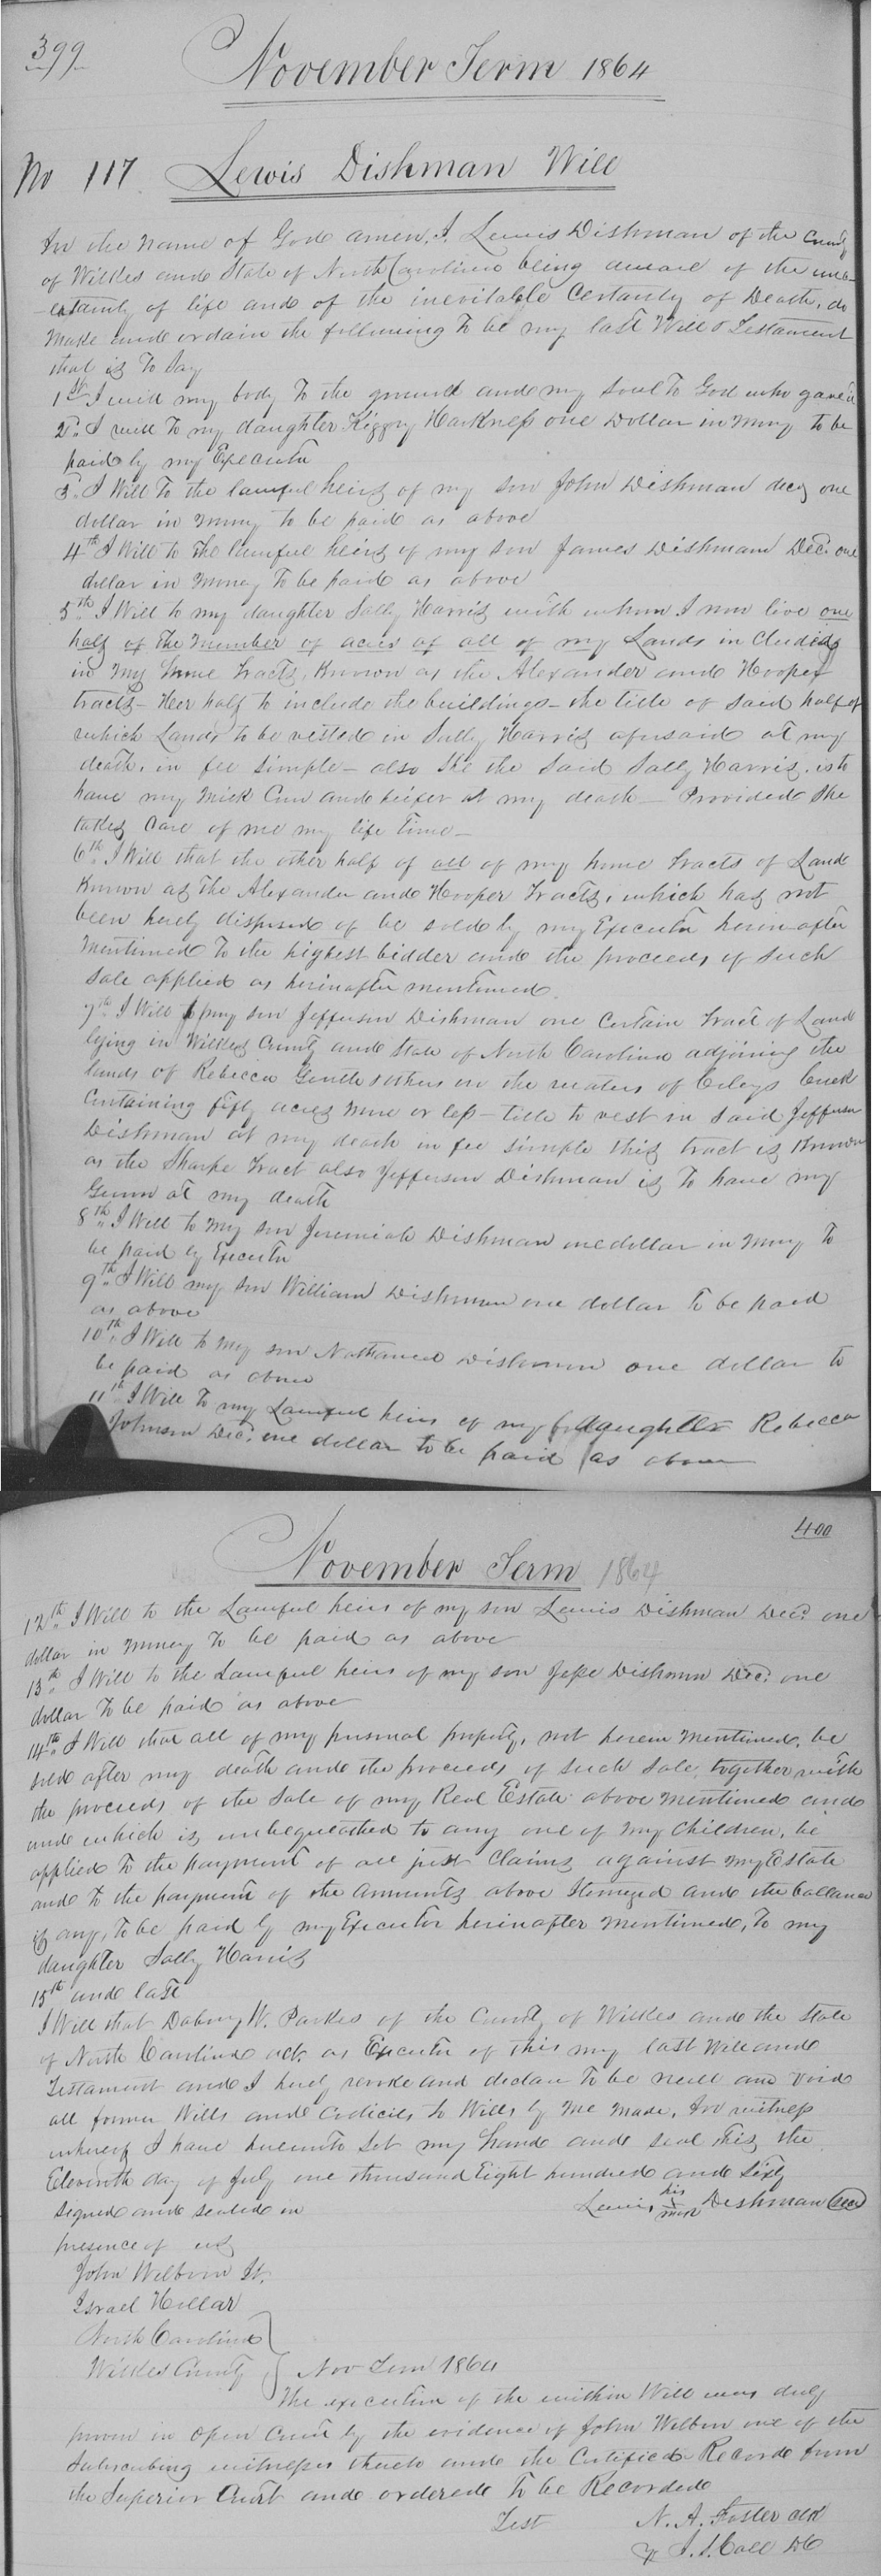 399
November Term 1864
No 117 Lewis Dishman Will
In the name of God amen, I Lewis Dishman of the County
of Wilkes and State of North Carolina being aware of the unc-
-ertainty of life and of the inevitable Certainty of Death, do
Make and ordain the following To be my last Will & Testament
that is To Say
1st I will my body To the ground and my Soul To God who gave it
2d. I will To my daughter Kizzy Harkness one Dollar in Money to be
paid by my Executor
3d. I Will To the lawful heirs of my son John Dishman decd one
dollar in money to be paid as above
4th I Will to The lawful heirs of my son James Dishman Decd. one
dollar in money To be paid as above
5th I Will to my daughter Sally Harris with whom I now live one
half of the number of acres of all of my Lands in Cluding
in my home tracts, Known as the Alexander and Hooper
tracts - Her half to include the buildings - the title of said half of
which Lands to be vested in Sally Harris afersaid at my
death, in fee simple - also She the Said Sally Harris, is to
have my Milk Cow and heifer at my death - Provided She
takes Care of me my life time -
6th I Will that the other half of all of my home tracts of Land
Known as The Alexander and Hooper tracts, which has not
been herely disposed of be sold by my Executor herin after
Mentioned To the highest bidder and the proceeds of such
Sale applied as herinafter mentioned.
7th I Will to my son Jefferson Dishman one Certain tract of Land
lying in Wilkes County and State of North Carolina adjoining the
lands of Rebecca Gentle & others on the waters of Creek
Containing fifty acres more or less - title to vest in Said Jefferson
Dishman at my death in fee simple this tract is Known
as the Sharpe tract also Jefferson Dishman is To have my
Gunn at my death
8th I Will to my son Jeremiah Dishman one dollar in Money To
be paid by Executor
9th I Will my son William Dishman one dollar To be paid
as above
10th I Will to my son Nathaniel Dishman one dollar to
be paid as above
11th I Will To my Lawful heirs of my daughter Rebecca
Johnson Decd. one dollar to be paid as above
400
November Term 1864
12th I Will to the Lawful heirs of my son Lewis Dishman Decd. one
dollar in money To be paid as above
13th I Will to the Lawful heirs of my son Jesse Dishman Decd. one
dollar To be paid as above
14th I Will that all of my personal property, not herein mentioned, be
sold after my death and the proceeds of such Sale, together with
the proceeds of the Sale of my Real Estate above mentioned and
and which is unbequeathed to any one of my Children, be
applied To the payment of all just Claims against my Estate
and to the payment of the Amounts above Itemized and the ballance
if any, To be paid by my Executor herinafter mentioned, To my
daughter Sally Harris
15th and last
I Will that Dabney W. Parkes of the County of Wilkes and the State
of North Carolina act as Executor of this my last Will and
Testament and I herely revoke and declare To be null and void
all former Wills and Codicils to Wills by me made, In witness
whereof I have hereunto Set my hand and seal this the
Eleventh day of July one thousand Eight hundred and Sixty
Signed and sealed in Lewis his X mark Dishman (Seal)
presence of us
John Welborn Sr.
Israel Hellar
North Carolina
Wilkes County } Nov Term 1864
The execution of the within Will was duly
proven in open Court by the evidence of John Welborn one of the
Subscribing witnesses thereto and the Certified Record from
the Superior Court and ordered To be Recorded
Test N. A. Foster Clk
By J. S. Call DC